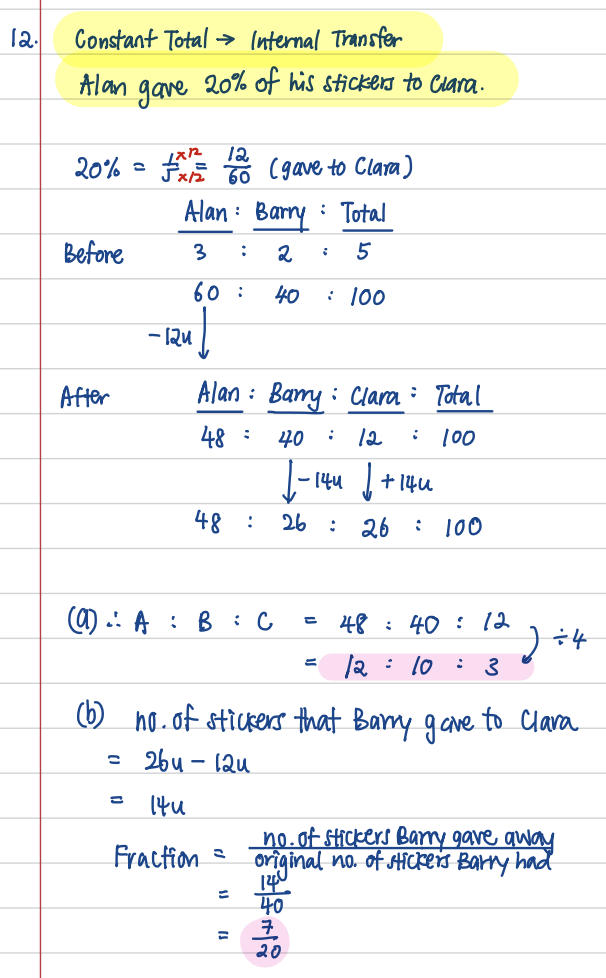 12. Constant Total → Internal Transfer
Alan gave 20% of his stickers to Clara.
20% = 1/5 ×12 ×12 = 12/60 (gave to Clara)
Alan : Barry : Total
Before 3 : 2 : 5
60 : 40 : 100
-12u
After Alan : Barry : Clara : Total
48 : 40 : 12 : 100
-14u +14u
48 : 26 : 26 : 100
(a) ∴ A : B : C = 48 : 40 : 12
÷4
= 12 : 10 : 3
(b) no. of stickers that Barry gave to Clara
= 26u - 12u
= 14u
Fraction = no. of stickers Barry gave away / original no. of stickers Barry had
= 14/40
= 7/20